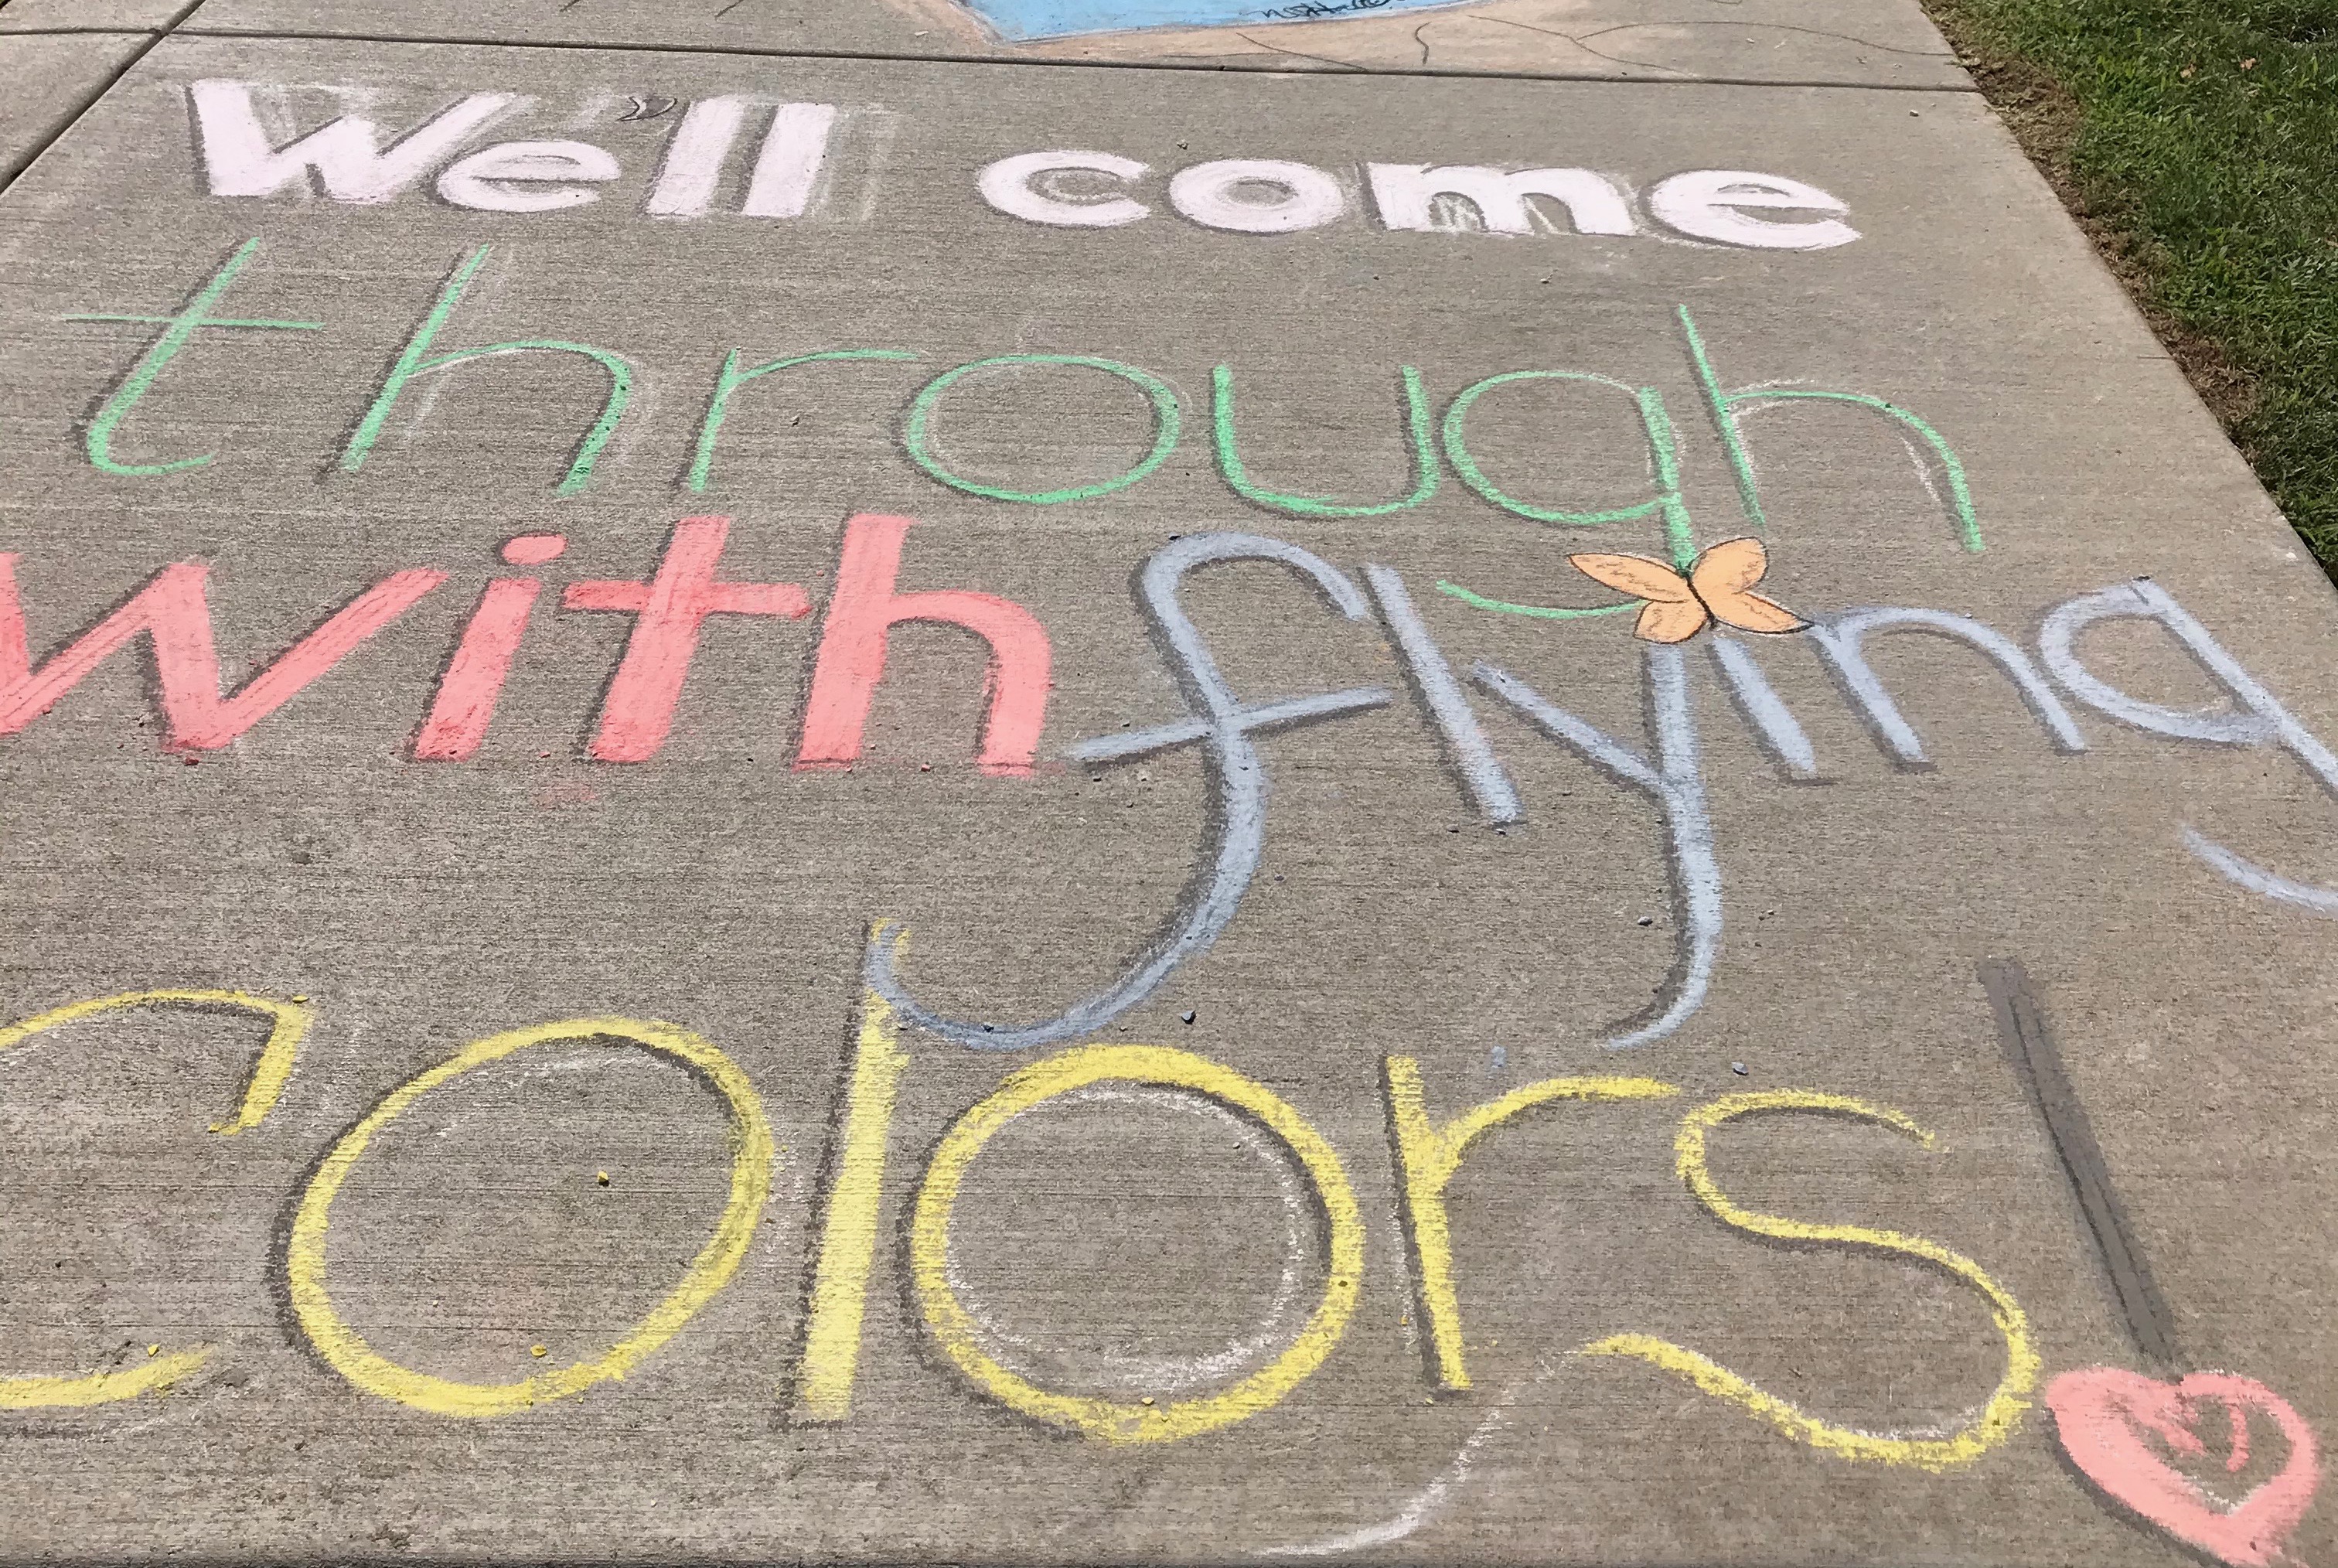 We'll come
through
with flying
colors!